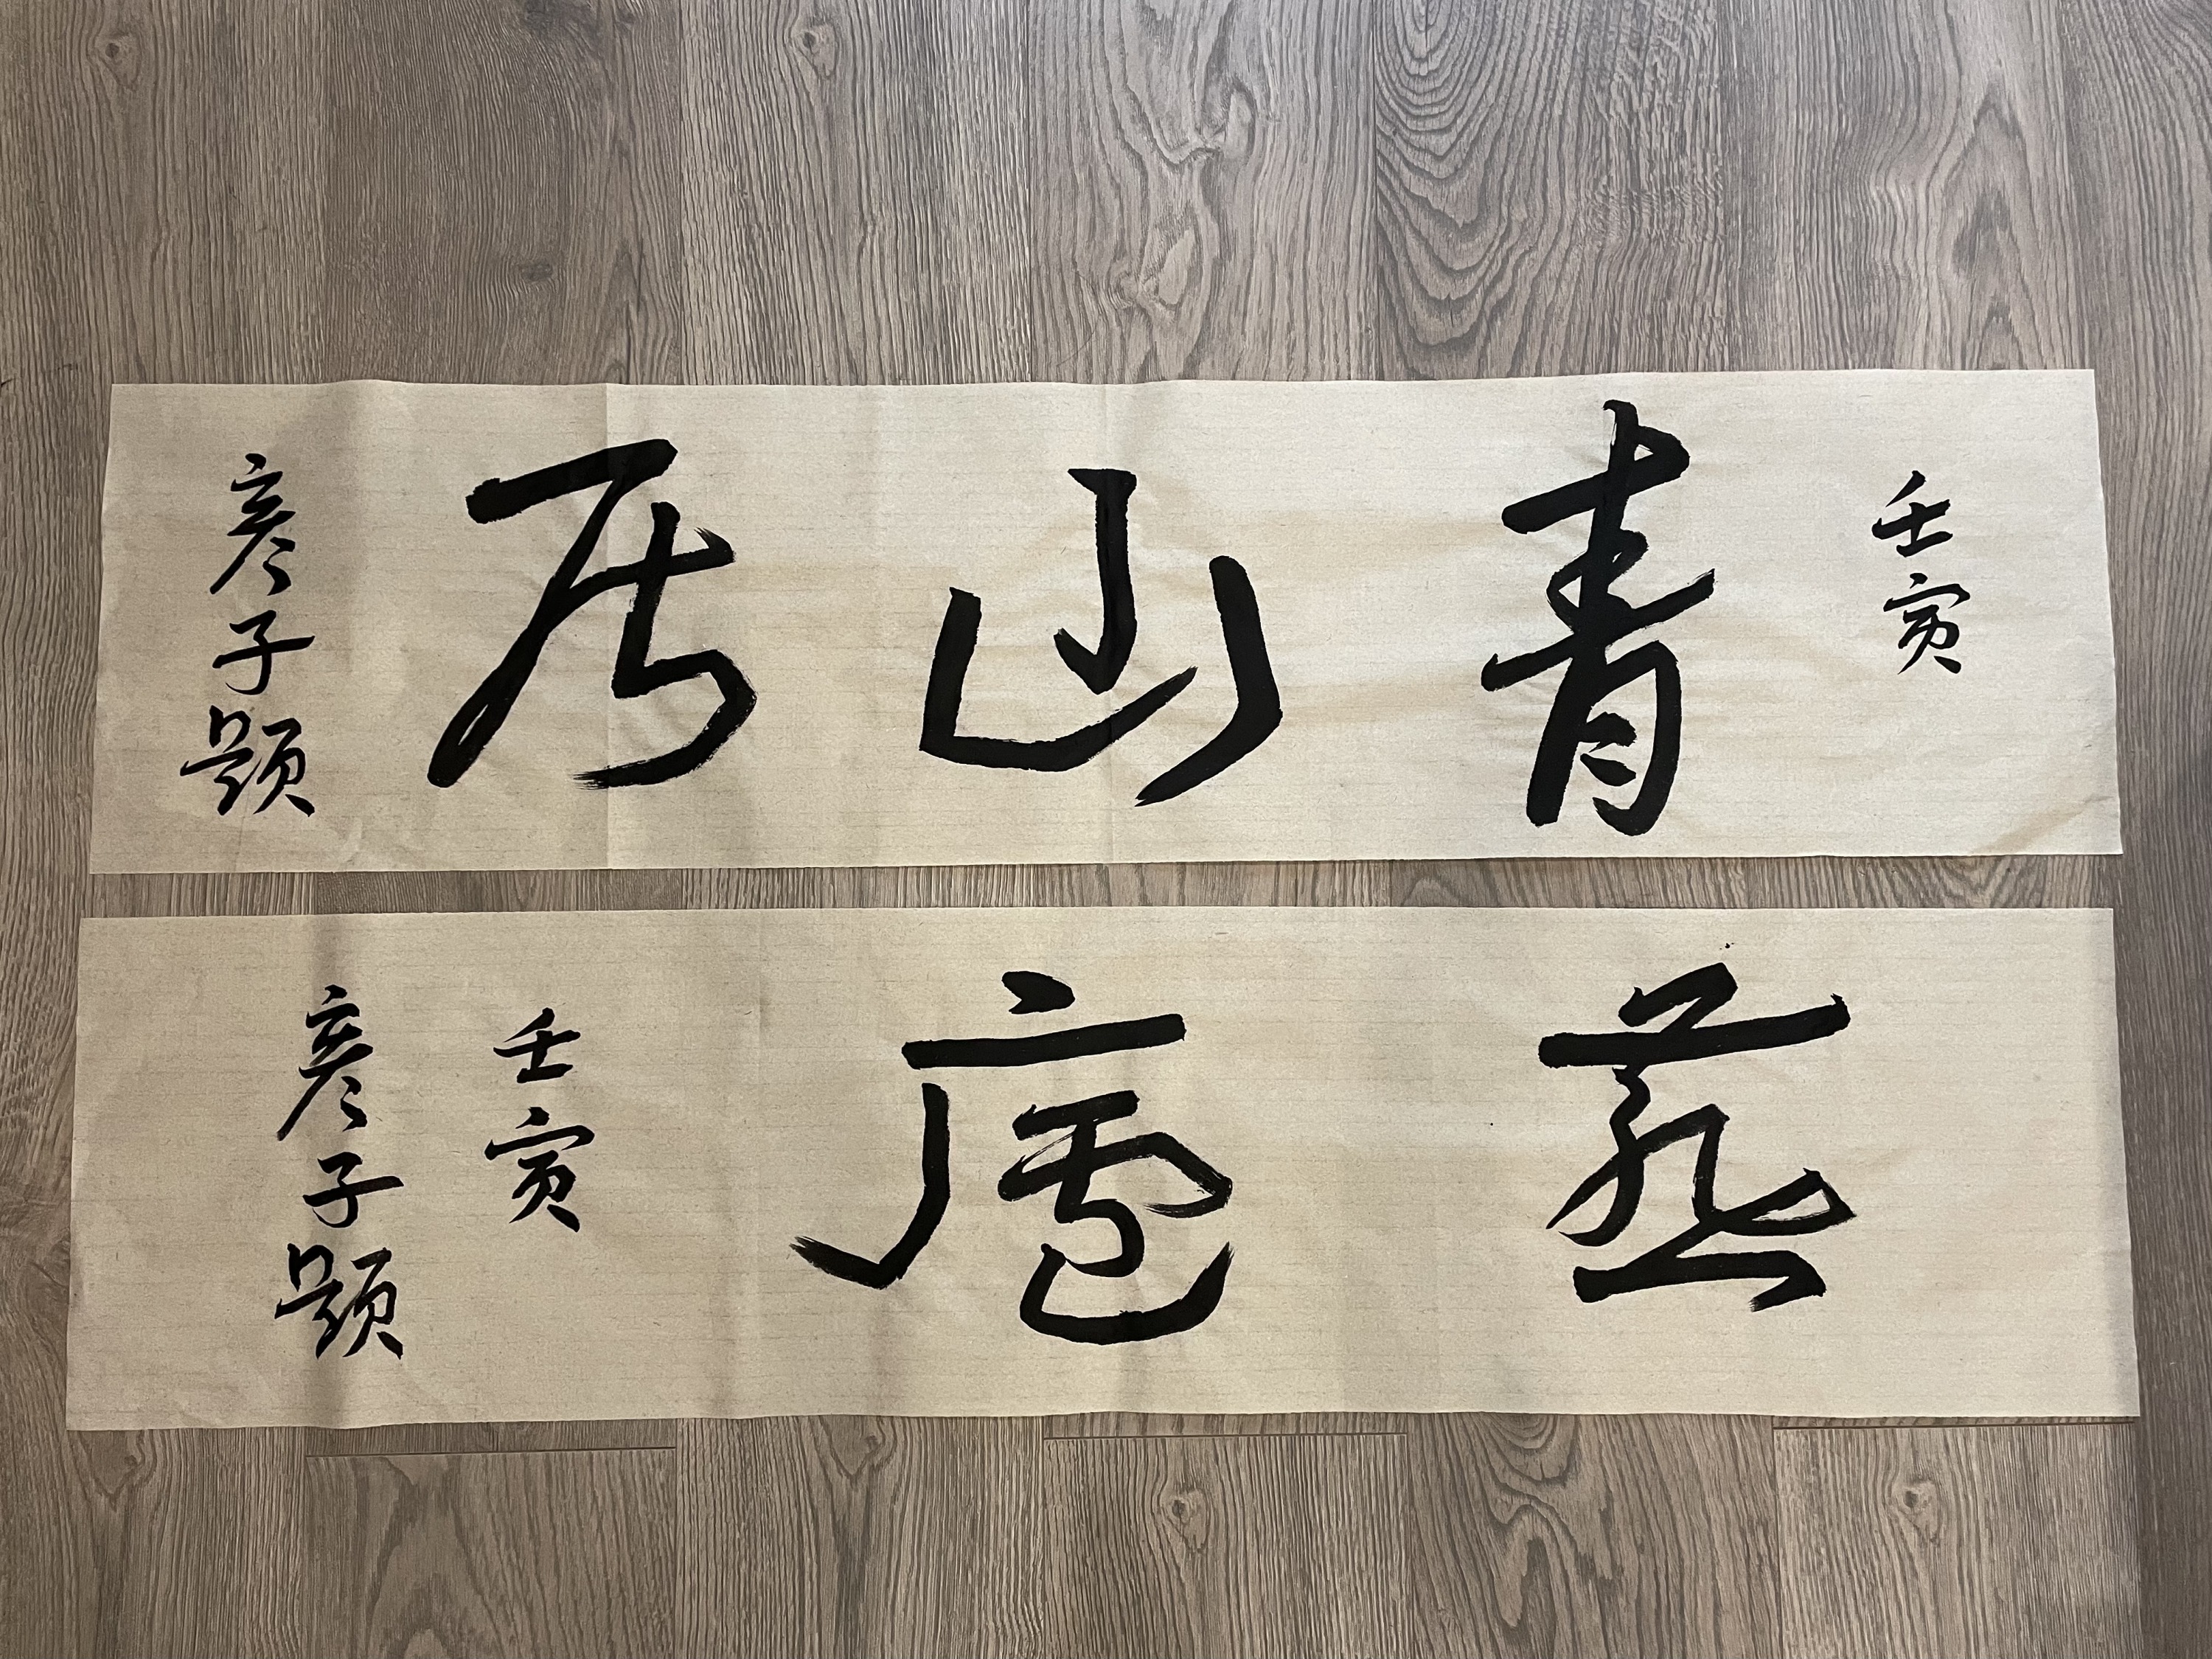 壬寅
青山居
彦子题
燕廬
壬寅
彦子题